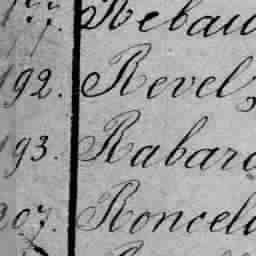 177. Rebau
192. Revel,
193. Rabard
207. Roncel